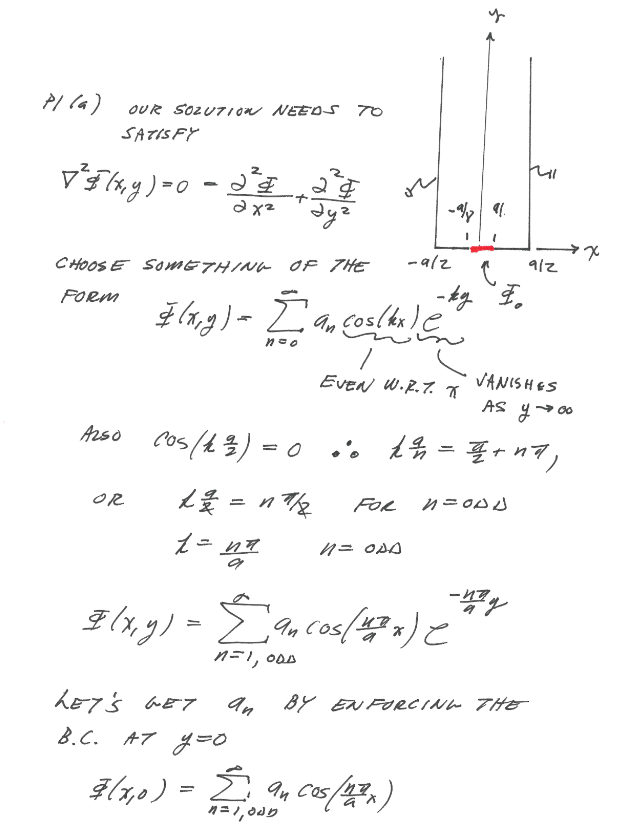 y
P1 (a) OUR SOLUTION NEEDS TO
SATISFY
∇²Φ(x,y) = 0 = ∂²Φ/∂x² + ∂²Φ/∂y²
-a/2 a/2 x
Φ₀
CHOOSE SOMETHING OF THE
FORM
Φ(x,y) = ∑_{n=0}^{∞} aₙ cos(kx) e^{-ky}
EVEN W.R.T. x VANISHES
AS y → ∞
ALSO cos(k a/2) = 0 ∴ k a/n = π/2 + nπ,
OR k a/2 = nπ/2 FOR n = ODD
k = nπ/a n = ODD
Φ(x,y) = ∑_{n=1, ODD}^{∞} aₙ cos(nπ/a x) e^{-nπ/a y}
LET'S GET aₙ BY ENFORCING THE
B.C. AT y=0
Φ(x,0) = ∑_{n=1, ODD}^{∞} aₙ cos(nπ/a x)